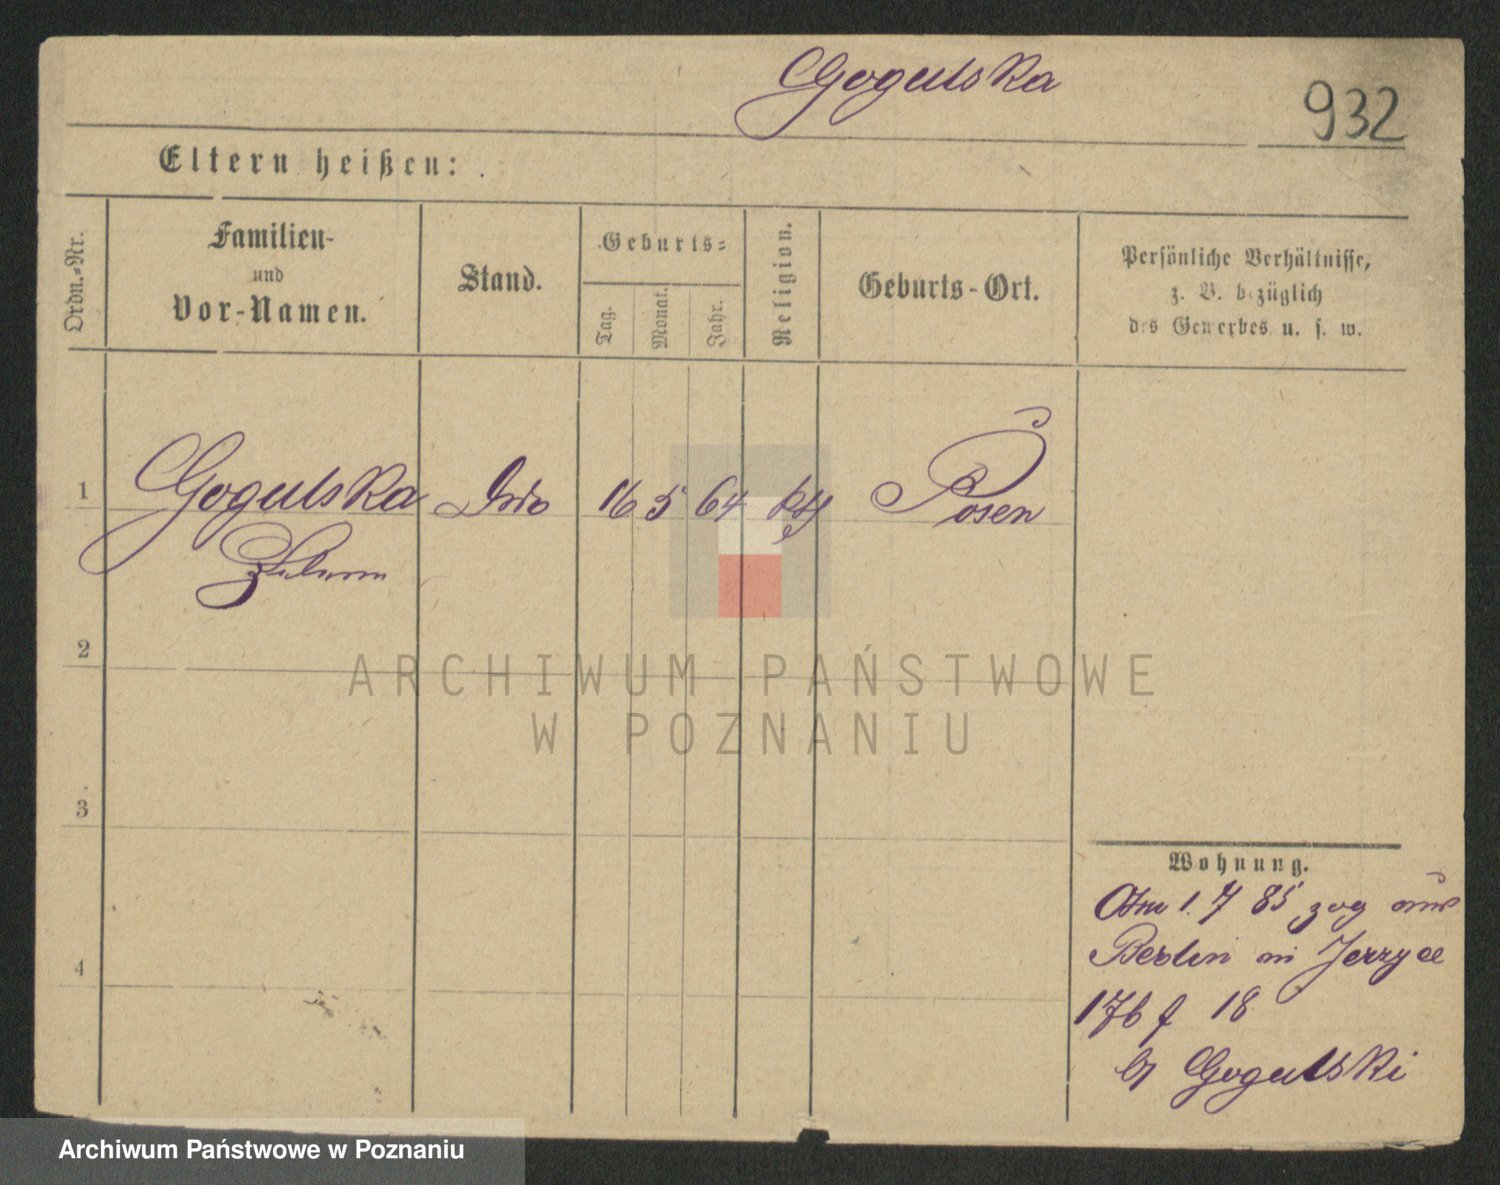 Gogulska
932
Eltern heißen:
Ordn.-Nr.
Familien-
und
Vor-Namen.
Stand.
Geburts-
Tag.
Monat.
Jahr.
Religion.
Geburts-Ort.
Persönliche Verhältnisse,
z. B. bezüglich
des Gewerbes u. s. w.
1
Gogulska
16 5 64 kth Posen
2
3
4
Wohnung.
Am 1. 7 85 zog aus
Berlin in Jerzyce
176 f 18
b/ Gogulski
ARCHIWUM PAŃSTWOWE
W POZNANIU
Archiwum Państwowe w Poznaniu